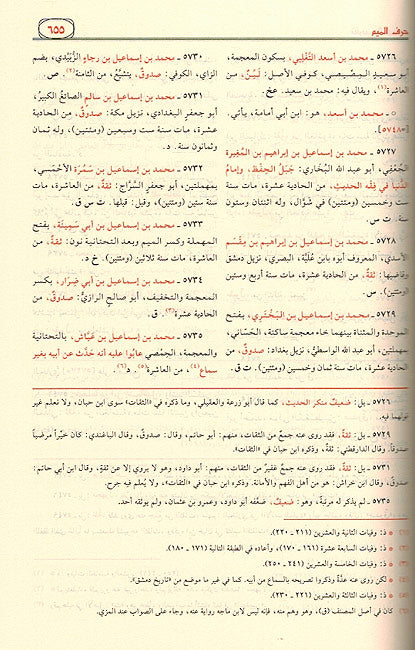 حرف الميم
٦٥٥
٥٧٢٦ ـ محمد بن أسعد التَّغْلبي، بسكون المعجمة،
أبو سعيد المِصِّيصي، كوفي الأصل: لَيِّنٌ، من
العاشرة(١)، ويقال فيه: محمد بن سعيد. عخ.
٥ ـ محمد بن أسعد، هو: ابن أبي أمامة، يأتي.
[٥٧٤٨].
٥٧٢٧ ـ محمد بن إسماعيل بن إبراهيم بن المُغِيرة
الجُعْفي، أبو عبد الله البُخَاري: جَبَلُ الحِفْظ، وإمامُ
الدُّنيا في فِقْه الحديث، من الحادية عشرة، مات سنة
ست وخمسين (ومئتين) في شَوَّال، وله اثنتان وستون
سنة. ت س.
٥٧٢٨ ـ محمد بن إسماعيل بن إبراهيم بن مِقْسَم
الأسدي، المعروف أبوه بابن عُلَيَّة، البصري، نزيل دمشق
وقاضيها: ثقةٌ، من الحادية عشرة، مات سنة أربع وستين
(ومئتين). س.
٥٧٢٩ ـ محمد بن إسماعيل بن البَخْتَري، بفتح
الموحدة والمثناة بينهما خاء معجمة ساكنة، الحَسَّاني،
بمهملتين، أبو عبد الله الواسطيُّ، نزيل بغداد: صدوقٌ، من
الحادية عشرة، مات سنة ثمان وخمسين (ومئتين). ت ق.
٥٧٣٠ ـ محمد بن إسماعيل بن رجاءٍ الزُّبَيْدي، بضم
الزاي، الكوفي: صدوقٌ، يتشيَّعُ، من الثامنة(٢). ص.
٥٧٣١ ـ محمد بن إسماعيل بن سالمٍ الصائغُ الكبيرُ،
أبو جعفر البغدادي، نزيل مكة: صدوقٌ، من الحادية
عشرة، مات سنة ست وسبعين (ومئتين)، وله ثمان
وثمانون سنة. د.
٥٧٣٢ ـ محمد بن إسماعيل بن سَمُرَة الأَحْمَسي،
بمهملتين، أبو جعفر السَّرَّاج: ثقةٌ، من العاشرة، مات
سنة ستين (ومئتين)، وقيل: قبلها. ت س ق.
٥٧٣٣ ـ محمد بن إسماعيل بن أبي سَمِينَة، بفتح
المهملة وكسر الميم وبعد التحتانية نون: ثقةٌ، من
العاشرة، مات سنة ثلاثين (ومئتين). خ د.
٥٧٣٤ ـ محمد بن إسماعيل بن أبي ضِرَار، بكسر
المعجمة والتخفيف، أبو صالح الرازيُّ: صدوقٌ، من
الحادية عشرة(٣). ق.
٥٧٣٥ ـ محمد بن إسماعيل بن عَيَّاش، بالتحتانية
والمعجمة، الحِمْصي: عابُوا عليه أنه حَدَّث عن أبيه بغير
سماع(٤)، من العاشرة(٥). د(٦).
٥٧٢٦ ـ بل: ضعيفٌ منكر الحديث، كما قال أبو زرعة والعقيلي، وما ذكره في «الثقات» سوى ابن حبان، ولا نعلم غير
قولهما فيه.
٥٧٢٩ ـ بل: ثقةٌ، فقد روى عنه جمعٌ من الثقات، منهم: أبو حاتم، وقال: صدوقٌ، وقال الباغندي: كان خَيِّراً مرضياً
صدوقاً. وقال الدارقطني: ثقةٌ، وذكره ابن حبان في «الثقات».
٥٧٣١ ـ بل: ثقةٌ، فقد روى عنه جمعٌ غفيرٌ من الثقات، منهم: أبو داود، وهو لا يروي إلا عن ثقةٍ، وقال ابن أبي حاتم:
صدوقٌ، وقال ابن خراش: هو من أهل الفهم والأمانة. وذكره ابن حبان في «الثقات»، ولا يُعلم فيه جرح.
٥٧٣٥ ـ لم يذكر له مرتبةً، وهو: ضعيفٌ، ضعَّفه أبو داود، وعمرو بن عثمان، ولم يوثقه أحد.
(١) ذ: وفيات الثانية والعشرين (٢١١ ـ ٢٢٠).
(٢) ذ: وفيات السابعة عشرة (١٦١ ـ ١٧٠)، وأعاده في الطبقة التالية (١٧١ ـ ١٨٠).
(٣) ذ: وفيات الخامسة والعشرين (٢٤١ ـ ٢٥٠).
(٤) لكن روى عنه عدَّةٌ وذكروا تصريحه بالسماع من أبيه. كما في غير ما موضع من «تاريخ دمشق».
(٥) ذ: وفيات الثالثة والعشرين (٢٢١ ـ ٢٣٠).
(٦) كان في أصل المصنف (ق)، وهو وهم منه، فإنه ليس لابن ماجه رواية عنه، وجاء على الصواب عند المزي.